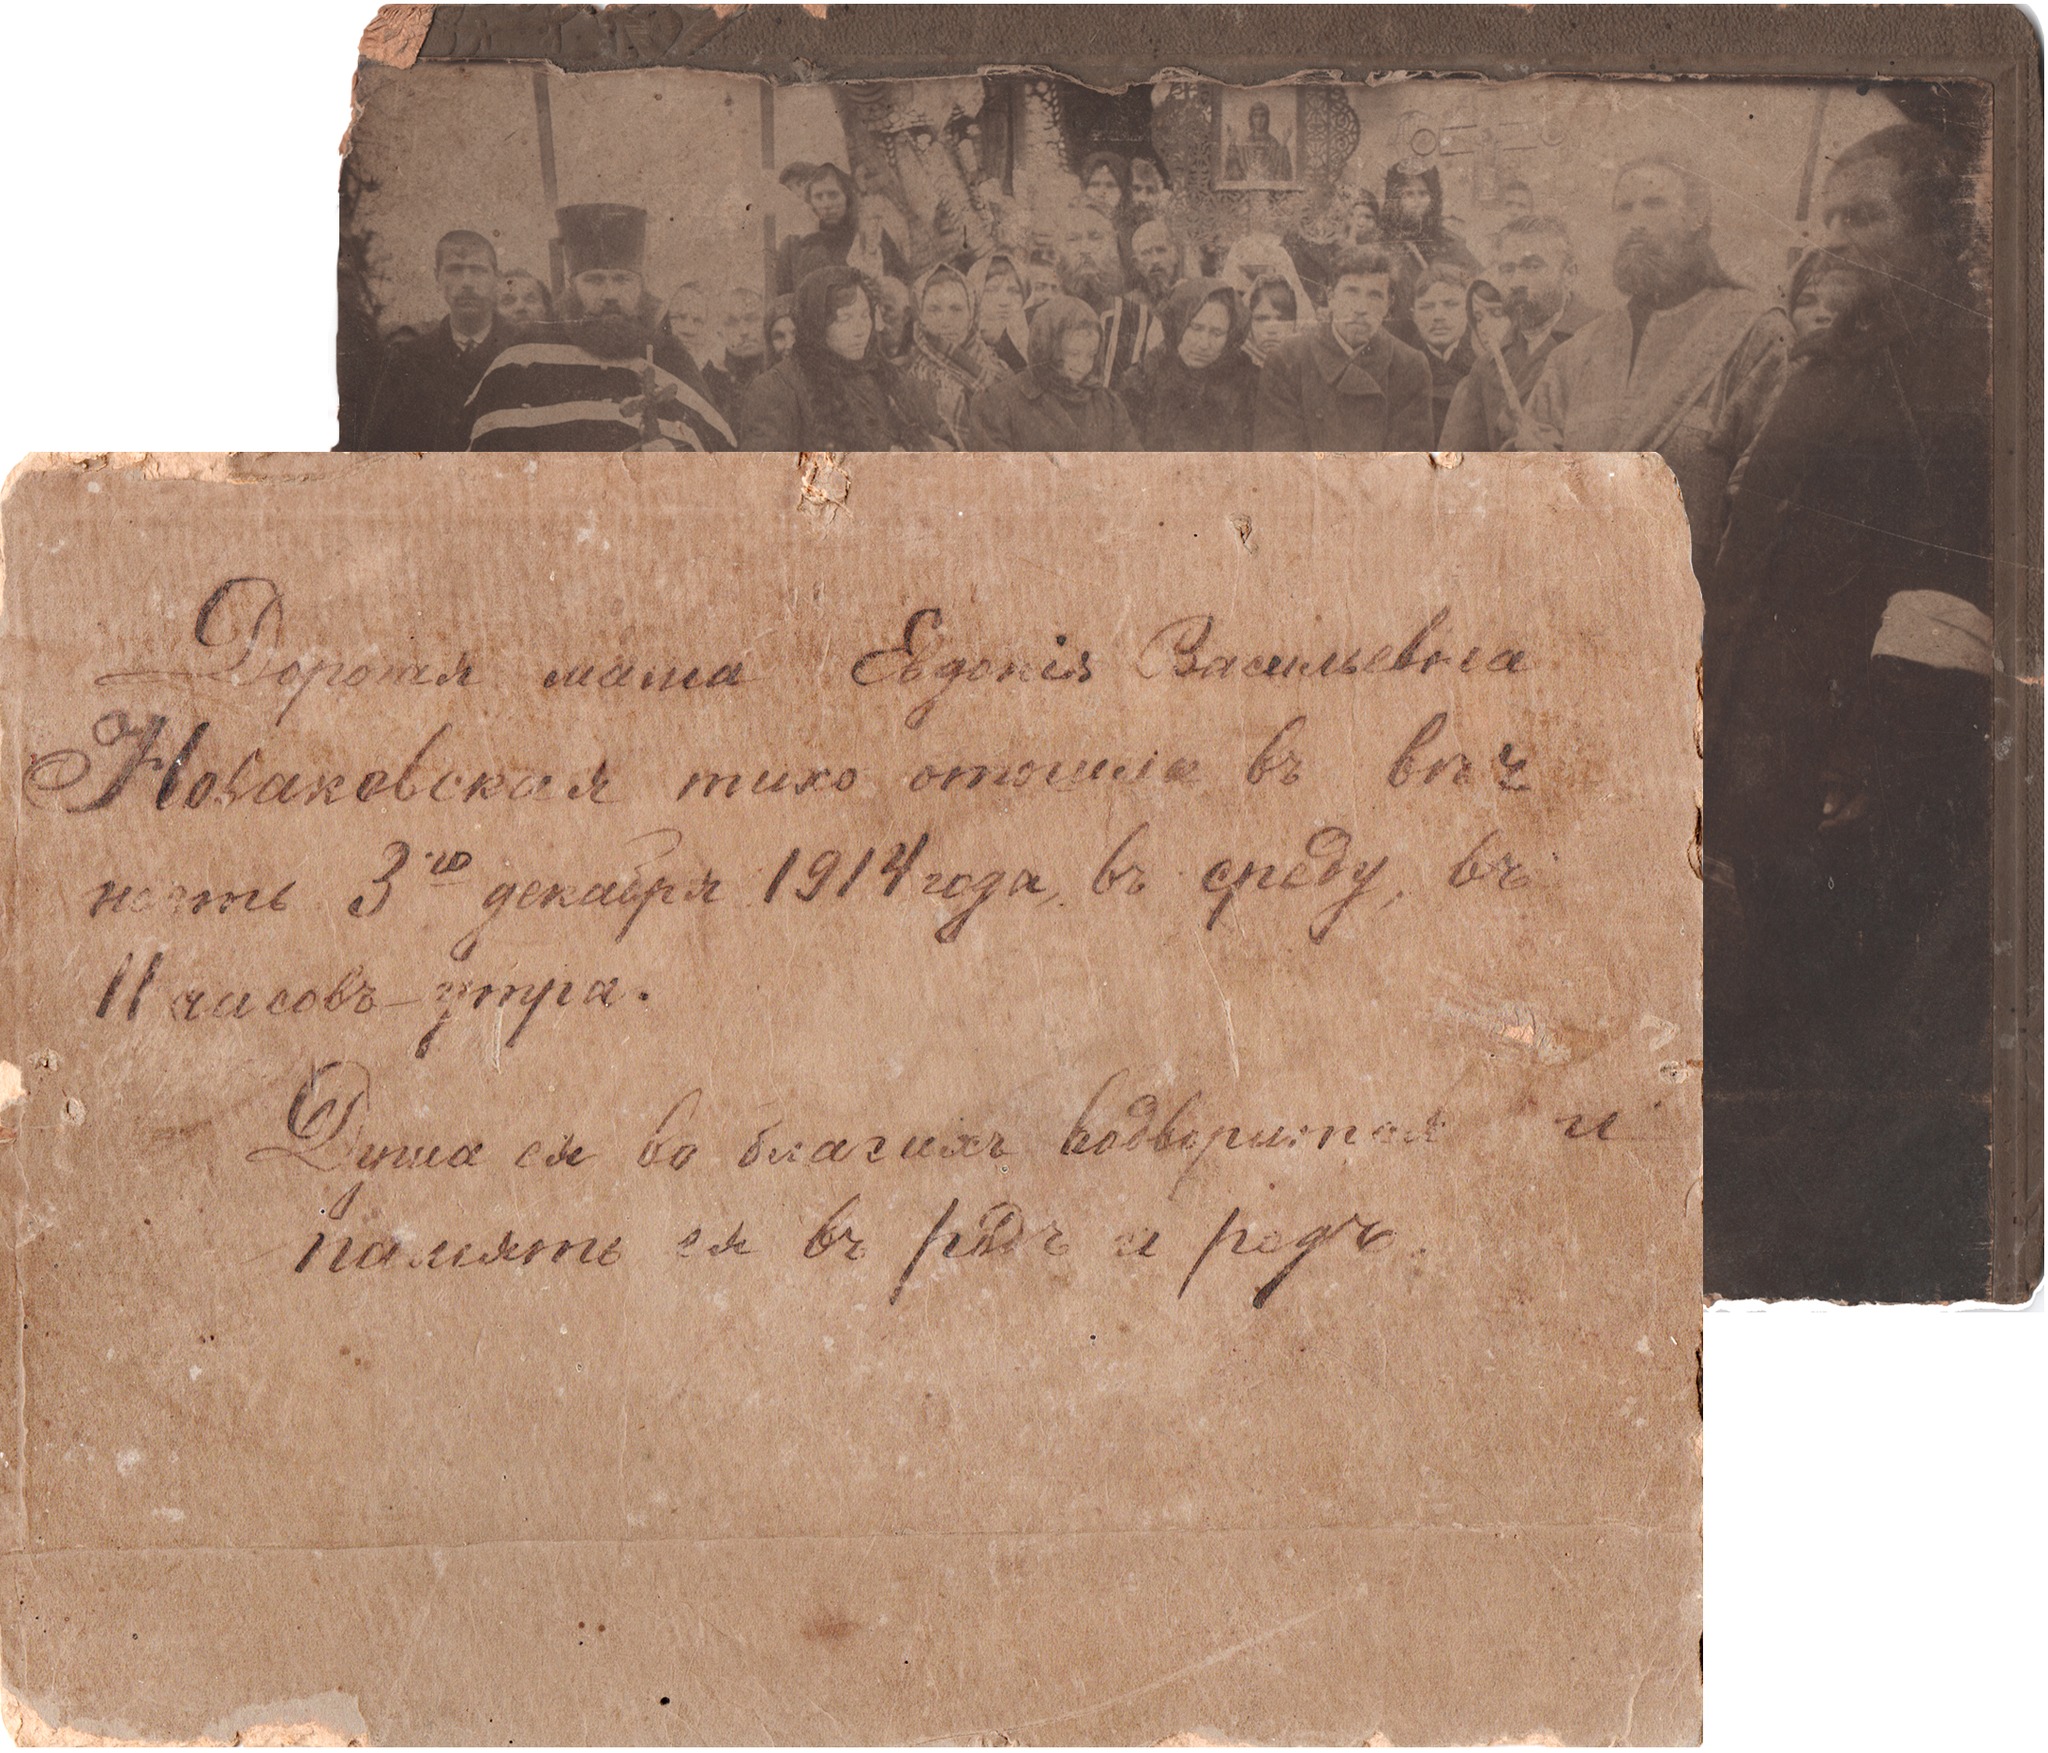 Дорогая мама Евдокія Васильевна
Новаковская тихо отошла въ вѣч
ность 3го декабря 1914 года, въ среду, въ
11 часовъ утра.
Душа ея во благихъ водворится и
память ея въ родъ и родъ.